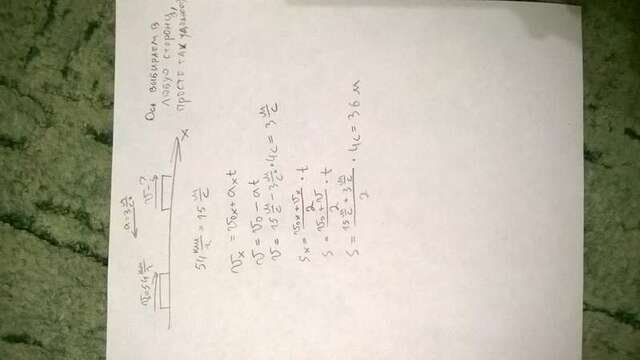 Оси выбираем в
любую сторону,
просто так удобнее
a=3 м/с²
v₀=54 км/ч
v-?
x
54 км/ч = 15 м/с
vₓ = v₀ₓ + aₓt
v = v₀ - at
v = 15 м/с - 3 м/с² · 4с = 3 м/с
sₓ = (v₀ₓ + vₓ)/2 · t
s = (v₀ + v)/2 · t
s = (15 м/с + 3 м/с)/2 · 4с = 36 м